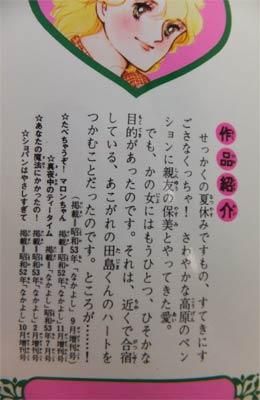 作品紹介
せっかくの夏休みですもの、すてきにす
ごさなくっちゃ! さわやかな高原のペン
ションに親友の保美とやってきた愛。
でも、かの女にはもうひとつ、ひそかな
目的があったのです。それは、近くで合宿
している、あこがれの田島くんのハートを
つかむことだったのです。ところが……!
(掲載=昭和53年「なかよし」9月増刊号)
☆たべちゃうぞ! マロンちゃん 掲載=昭和52年「なかよし」11月増刊号
☆真夜中のティータイム 掲載=昭和53年「なかよし」7月号
☆あなたの魔法にかかったの! 掲載=昭和53年「なかよし」2月増刊号
☆ショパンはやさしすぎて 掲載=昭和52年「なかよし」10月増刊号